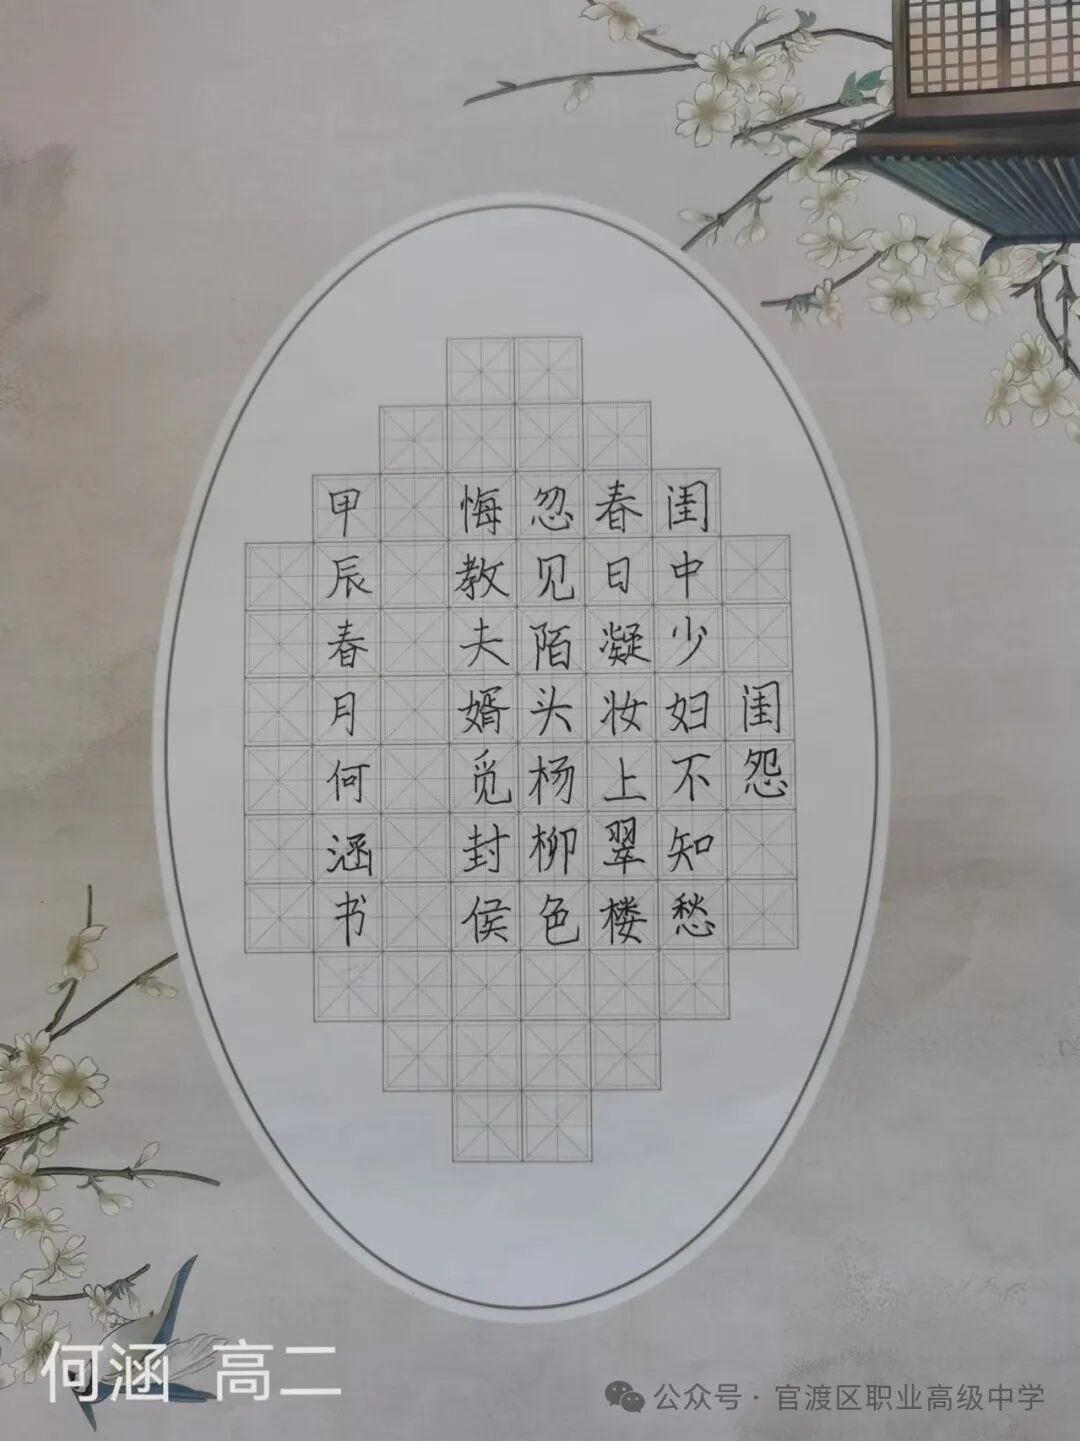 闺怨
闺中少妇不知愁
春日凝妆上翠楼
忽见陌头杨柳色
悔教夫婿觅封侯
甲辰春月何涵书
何涵 高二
公众号·官渡区职业高级中学